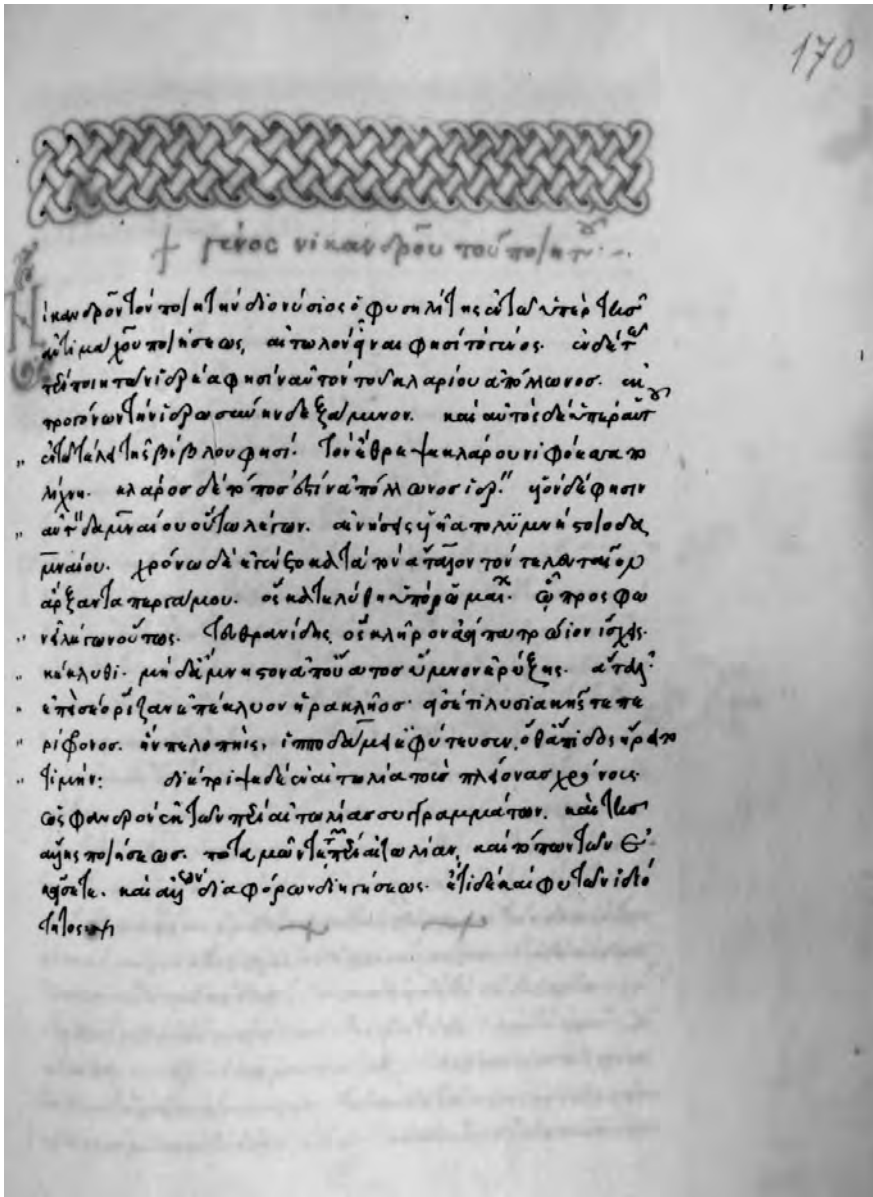 170
+ γένος νικάνδρου τοῦ ποιητοῦ
Νίκανδρον τὸν ποιητὴν διονύσιος ὁ φασηλίτης ἐν τῶ περὶ τῆς
ἀντιμάχου ποιήσεως, αἰτωλὸν εἶναι φησὶ τὸ γένος. ἐν δὲ τῶ
περὶ ποιητῶν ἱερέα φησὶν αὐτὸν τοῦ κλαρίου ἀπόλλωνος. ἐκ
προγόνων τὴν ἱερωσύνην δεξάμενον. καὶ αὐτὸς δὲ ὑπὲρ αὐτοῦ
ἐν τῶ τέλει τῆς βίβλου φησί. τὸν ἔθρεψε κλάρου νιφόεσσα πο
λίχνη. κλάρος δὲ τόπος ἐστὶν ἀπόλλωνος ἱερός. υἱὸν δὲ φησὶν
αὐτὸν δαμναίου οὕτω λέγων. αἰνήσεις υἱῆα πολυμνήστοιο δα
μναίου. χρόνω δὲ ἐγένετο κατὰ τὸν ἄτταλον τὸν τελευταῖον
ἄρξαντα περγάμου. ὃς κατελύθη ὑπὸ ῥωμαίων. ὧ προσφω
νεῖ λέγων οὕτως. τευθρανίδης, ὃς κλῆρον ἀεὶ πατρώϊον ἴσχεις.
κέκλυθι. μηδ' ἄμνηστον ἀπ' οὔατος ὕμνον ἐρύξης. ἄτταλ'
ἐπεὶ σέο ῥίζαν ἐπέκλυον ἡρακλῆος. εἰσέτι λυσιδίκης τε πε
ρίφρονος. ἣν πελοπηῒς, ἱπποδάμη ἐφύτευσεν, ὅθ' ἀπίδος ἤρατο
τιμήν: διέτριψε δὲ ἐν αἰτωλία τοὺς πλείονας χρόνους.
ὡς φανερὸν ἐκ τῶν περὶ αἰτωλίας συγγραμμάτων. καὶ τῆς
ἄλλης ποιήσεως. ποταμῶν τε τῶν περὶ αἰτωλίαν, καὶ τόπων τῶν ἐ
κεῖσε τε. καὶ ἄλλων διαφόρων διηγήσεως. ἔτι δὲ καὶ φυτῶν ἰδιό
τητος